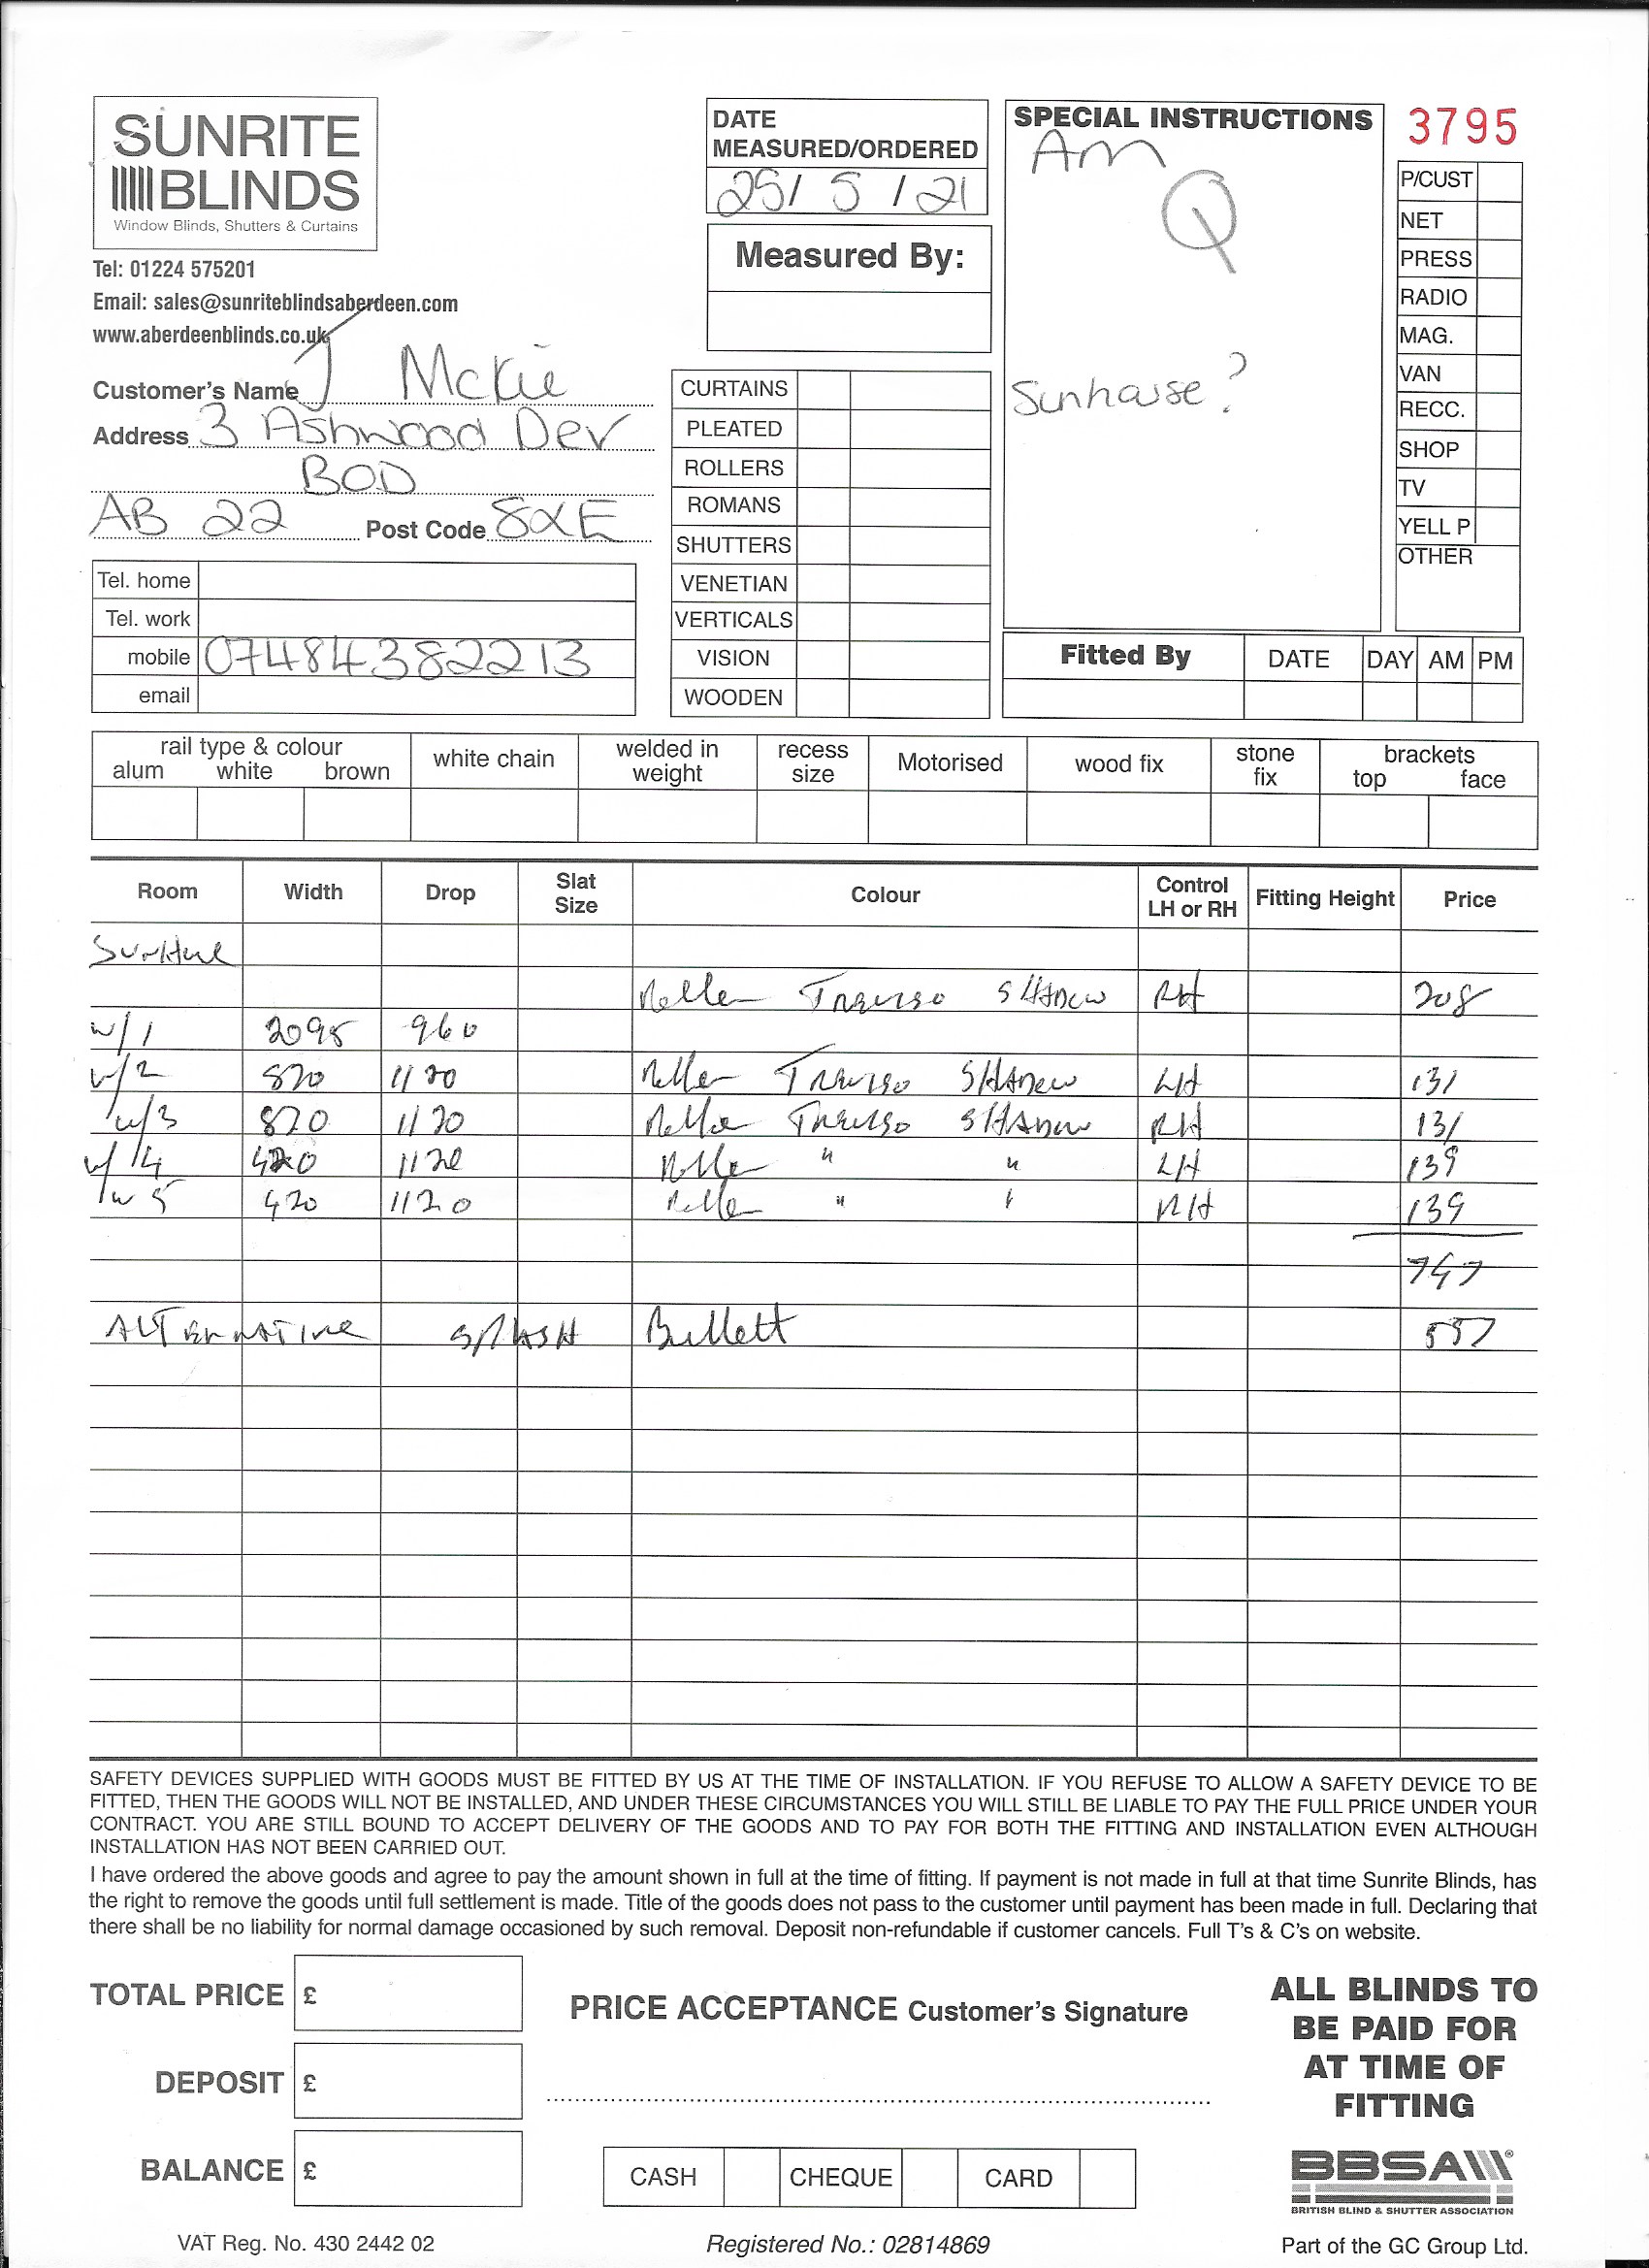 SUNRITE
BLINDS
Window Blinds, Shutters & Curtains
Tel: 01224 575201
Email: sales@sunriteblindsaberdeen.com
www.aberdeenblinds.co.uk
DATE
MEASURED/ORDERED
25/ 5 / 21
Measured By:
SPECIAL INSTRUCTIONS
Am
Q
Sunhouse?
3795
P/CUST
NET
PRESS
RADIO
MAG.
VAN
RECC.
SHOP
TV
YELL P
OTHER
Customer's Name J McKie
Address 3 Ashwood Dev
BOD
AB 22 Post Code 8XE
Tel. home
Tel. work
mobile 07484382213
email
CURTAINS
PLEATED
ROLLERS
ROMANS
SHUTTERS
VENETIAN
VERTICALS
VISION
WOODEN
Fitted By DATE DAY AM PM
rail type & colour
alum white brown
white chain
welded in
weight
recess
size
Motorised
wood fix
stone
fix
brackets
top face
Room Width Drop Slat Size Colour Control LH or RH Fitting Height Price
SHADOW RH 208
w/1 2095 960
w/2 820 1120 SHADOW LH 131
w/3 820 1120 SHADOW RH 131
w/4 420 1120 " " LH 139
w 5 420 1120 " " RH 139
747
ALTERNATIVE SPLASH 557
SAFETY DEVICES SUPPLIED WITH GOODS MUST BE FITTED BY US AT THE TIME OF INSTALLATION. IF YOU REFUSE TO ALLOW A SAFETY DEVICE TO BE
FITTED, THEN THE GOODS WILL NOT BE INSTALLED, AND UNDER THESE CIRCUMSTANCES YOU WILL STILL BE LIABLE TO PAY THE FULL PRICE UNDER YOUR
CONTRACT. YOU ARE STILL BOUND TO ACCEPT DELIVERY OF THE GOODS AND TO PAY FOR BOTH THE FITTING AND INSTALLATION EVEN ALTHOUGH
INSTALLATION HAS NOT BEEN CARRIED OUT.
I have ordered the above goods and agree to pay the amount shown in full at the time of fitting. If payment is not made in full at that time Sunrite Blinds, has
the right to remove the goods until full settlement is made. Title of the goods does not pass to the customer until payment has been made in full. Declaring that
there shall be no liability for normal damage occasioned by such removal. Deposit non-refundable if customer cancels. Full T's & C's on website.
TOTAL PRICE £
DEPOSIT £
BALANCE £
PRICE ACCEPTANCE Customer's Signature
CASH CHEQUE CARD
ALL BLINDS TO
BE PAID FOR
AT TIME OF
FITTING
BBSA
BRITISH BLIND & SHUTTER ASSOCIATION
VAT Reg. No. 430 2442 02
Registered No.: 02814869
Part of the GC Group Ltd.